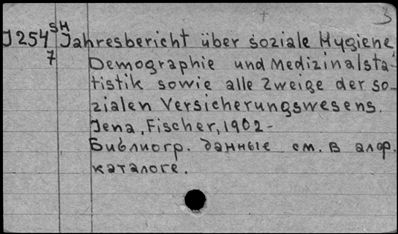 3
SH
J254 Jahresbericht über soziale Hygiene,
7 Demographie und Medizinalsta-
tistik sowie alle Zweige der so-
zialen Versicherungswesens.
Jena, Fischer, 1902-
Библиогр. данные см. в алф.
каталоге.